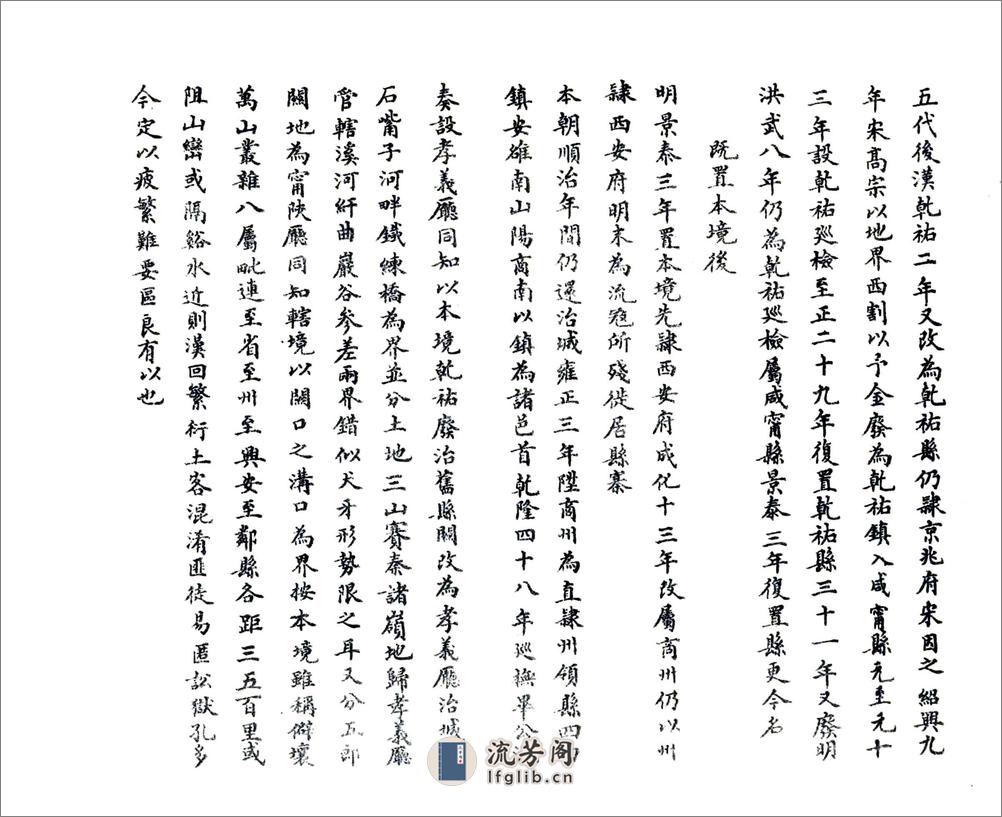 五代後漢乾祐二年又改為乾祐縣仍隷京兆府宋因之紹興九
年宋髙宗以地界西割以予金廢為乾祐鎮入咸甯縣元至元十
三年設乾祐廵檢至正二十九年復置乾祐縣三十一年又廢明
洪武八年仍為乾祐廵檢屬咸甯縣景泰三年復置縣更今名
既置本境後
明景泰三年置本境先隷西安府成化十三年改屬商州仍以州
隷西安府明末為流寇所殘徙居縣寨
本朝順治年間仍還治城雍正三年陞商州為直隷州領縣四
鎮安雒南山陽商南以鎮為諸邑首乾隆四十八年廵撫畢公
奏設孝義廳同知以本境乾祐廢治舊縣關改為孝義廳治城
石嘴子河畔鐵練橋為界並分土地三山賽秦諸嶺地歸孝義廳
管轄溪河紆曲巖谷參差兩界錯似犬牙形勢限之耳又分五郎
關地為甯陜廳同知轄境以關口之溝口為界按本境雖稱僻壤
萬山叢雜八屬毗連至省至州至興安至鄰縣各距三五百里或
阻山巒或隔谿水近則漢回繁衍土客混淆匪徒易匿訟獄孔多
今定以疲繁難要區良有以也
流芳阁
lfglib.cn